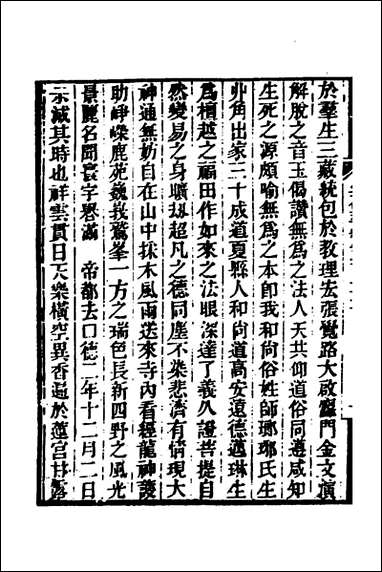 於羣生三藏統包於教理宏張覺路大啟靈門金文演
解脫之音玉偈讚無爲之法人天共仰道俗同遵咸知
生死之源頗喻無爲之本卽我和尚俗姓師瑯琊氏生
丱角出家三十成道夏縣人和尚道高安遠德邁琳生
爲檀越之福田作如來之法眼深達了義久證菩提自
然變易之身曠超凡之德同塵不染悲濟有情現大
神通無妨自在山中採木風雨送來寺內看經龍神護
助崢嶸鹿苑巍峩鷲峯一方之瑞色長新四野之風光
景麗名聞寰宇譽滿 帝都去口德二年十二月二日
示滅其時也祥雲貫日天樂橫空異香遍於蓮宮甘露